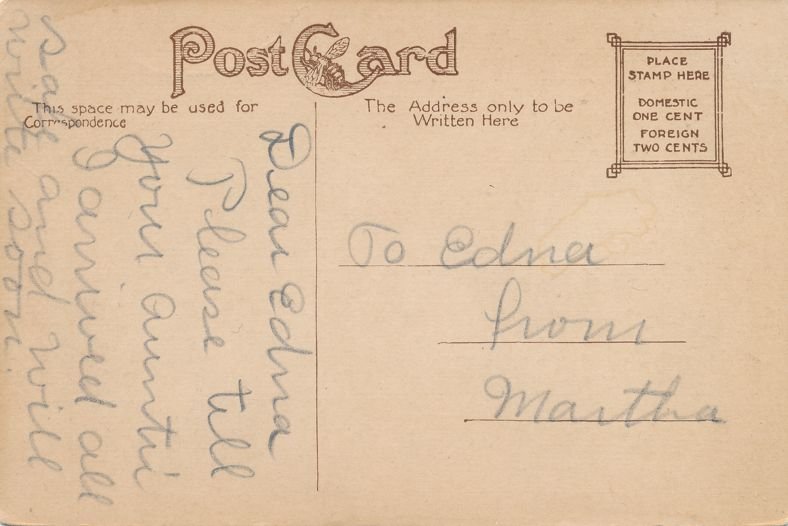 Post Card
This space may be used for
Correspondence
The Address only to be
Written Here
PLACE
STAMP HERE
DOMESTIC
ONE CENT
FOREIGN
TWO CENTS
Dear Edna
Please till
Your auntii
I arrived all
safe and will
write soon.
To Edna
from
Martha